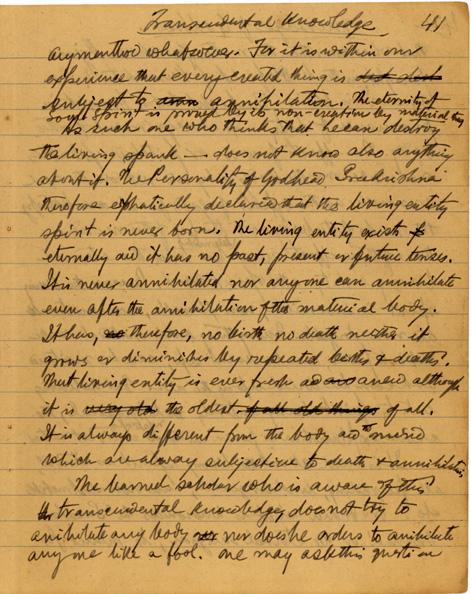 Transcendental Knowledge 41
argumention whatsoever. For it is within our
experience that every created thing is
subject to annihilation. The eternity of
soul spirit is proved by its non-creation by material thing
As such one who thinks that he can destroy
the living spark — does not know also anything
about it. The Personality of Godhead Sreekrishna
therefore emphatically declared that the living entity
spirit is never born. The living entity exists
eternally and it has no past, present or future tenses.
It is never annihilated nor anyone can annihilate
even after the annihilation of the material body.
It has, therefore, no birth no death neither it
grows or diminishes by repeated births & deaths.
That living entity is ever fresh and anew although
it is the oldest of all.
It is always different from the body and mind
which are alway subjective to death & annihilation
The learned scholar who is aware of this
transcendental knowledge, does not try to
anihilate any body nor does he orders to anihilate
any one like a fool. One may ask this question